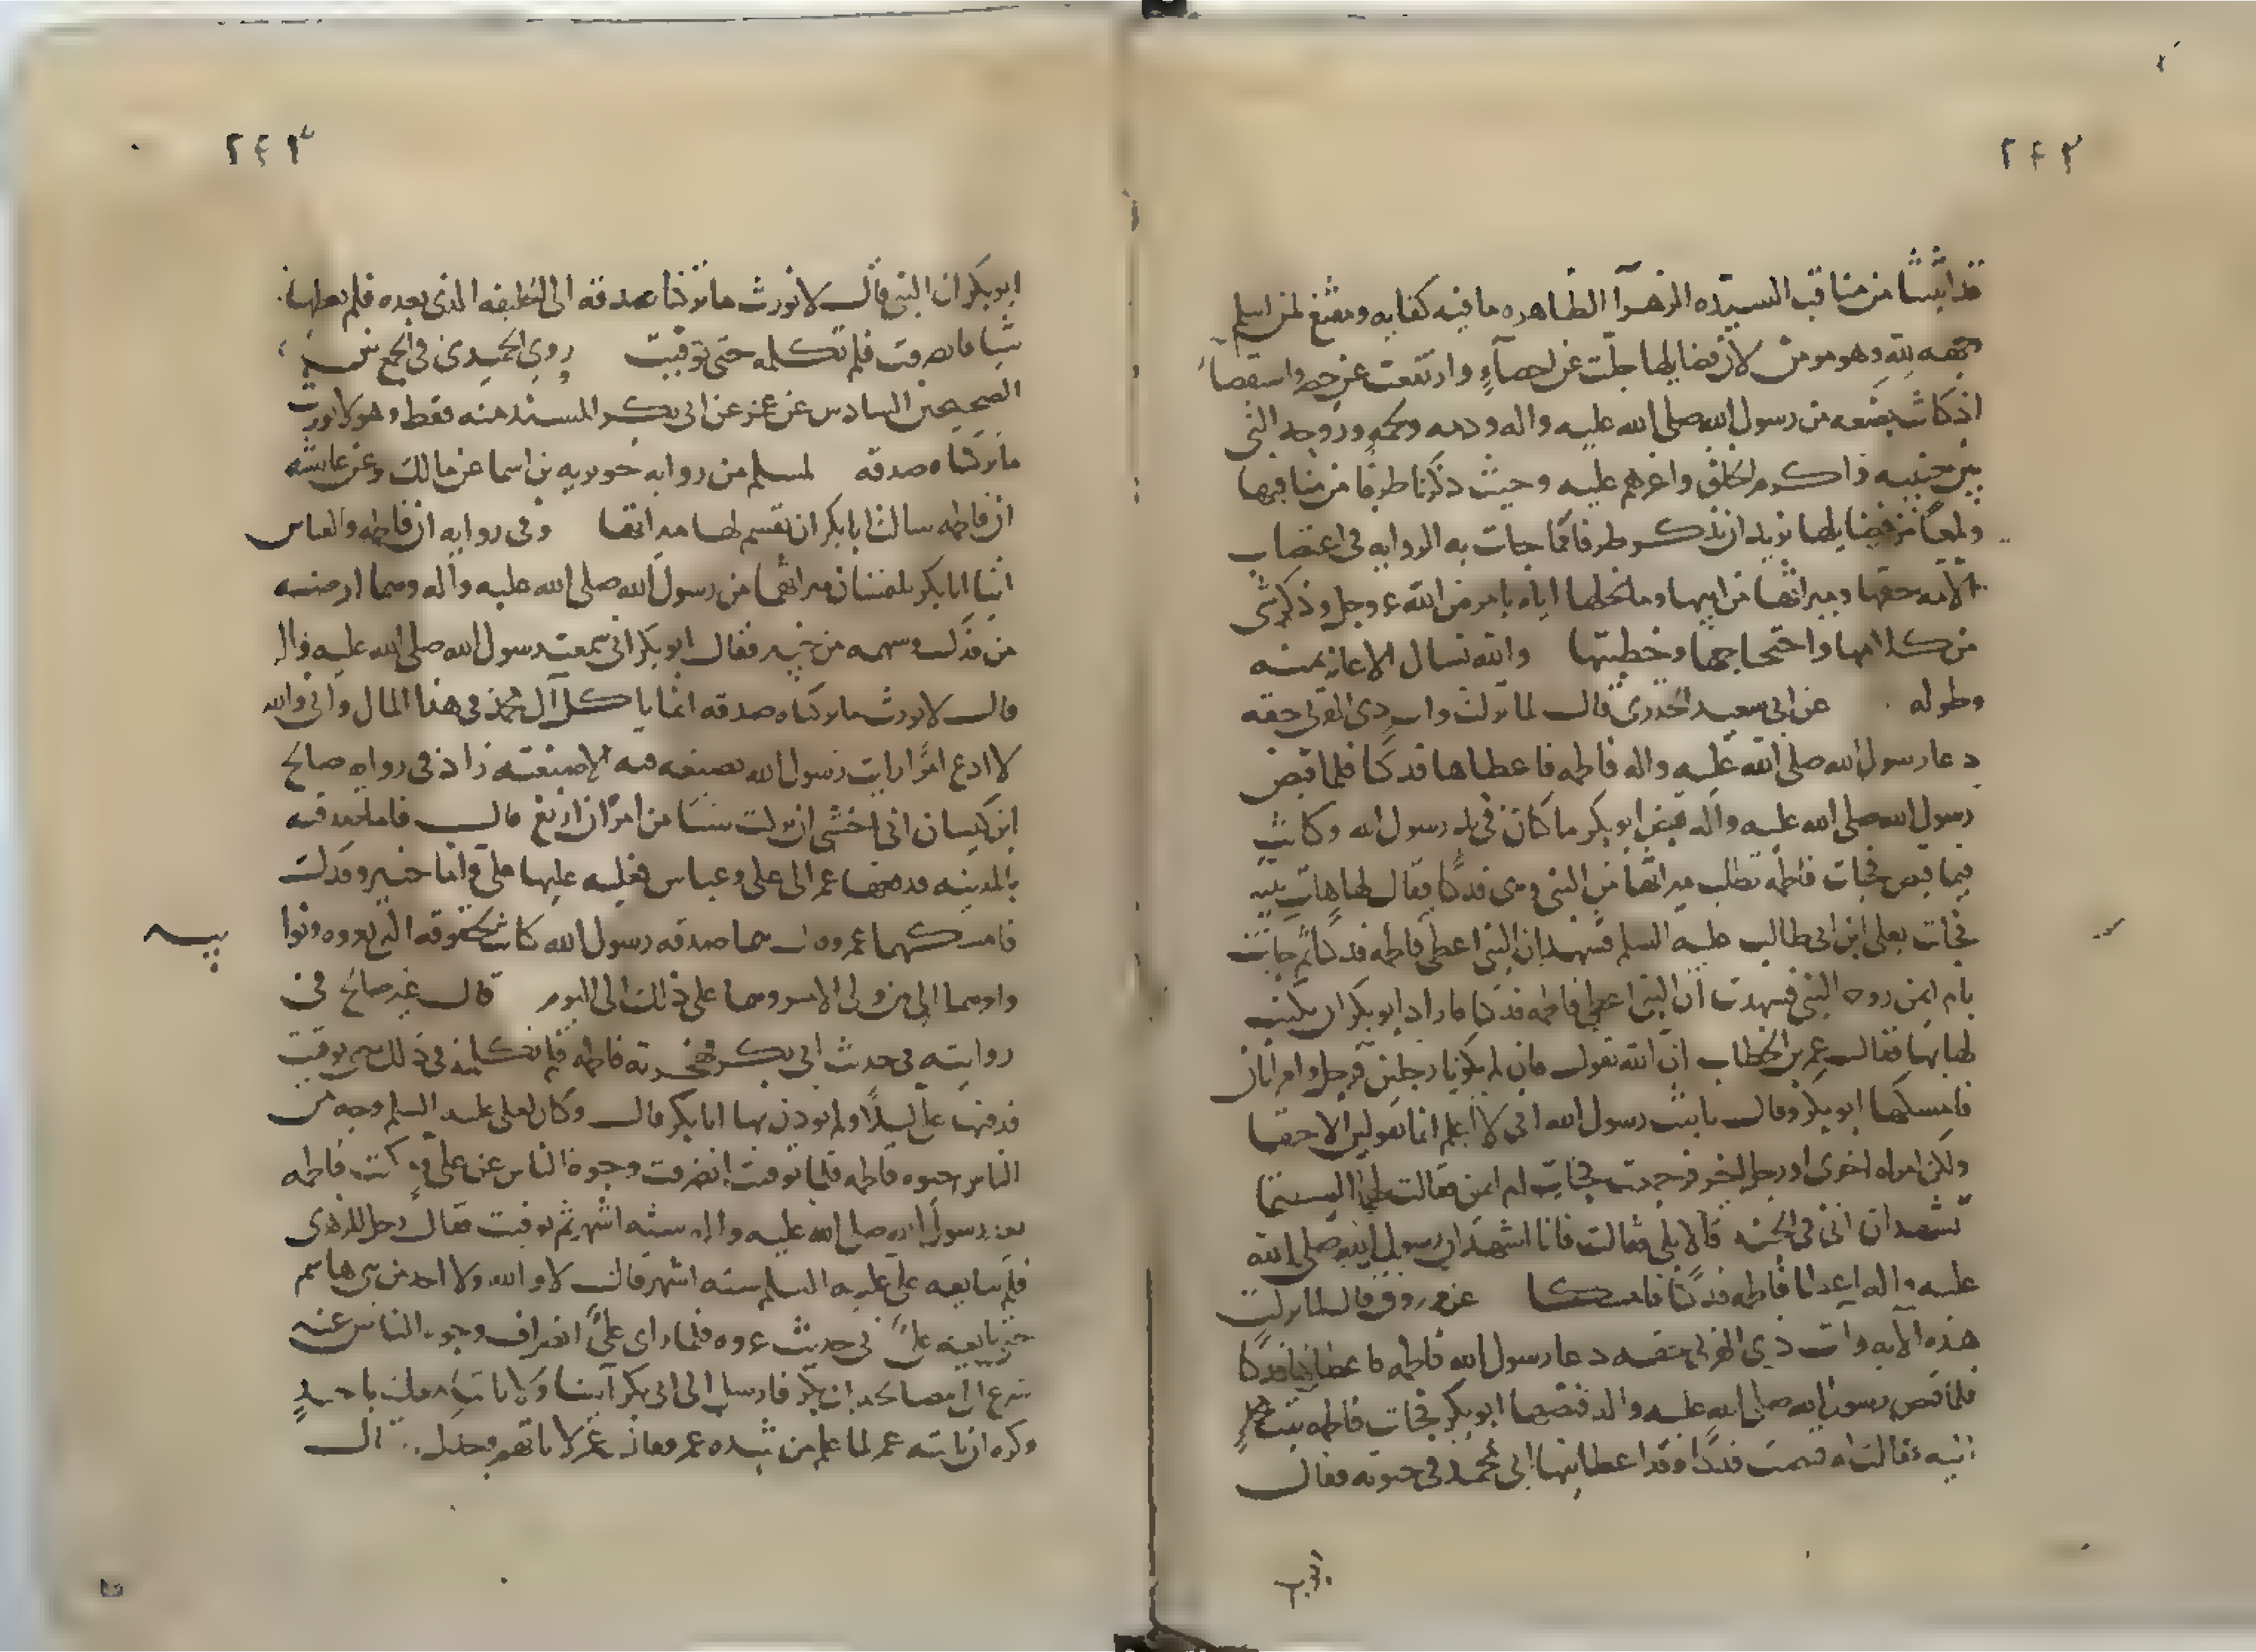 ٢٤٢
قد اثبتنا من مناقب السيده الزهرآ الطاهره ما فيه كفايه ومقنع لمن اسلم
وجهه لله وهو مومن لان فضايلها جلت عن احصآءٍ وارتفعت عن واستقصآء
اذ كانت بضعه من رسول الله صلى الله عليه واله ودمه ولحمه وروحه التي
بين جنبيه واكرم الخلق واعزهم عليه وحيث ذكرنا طرفا من مناقبها
ولمعًا من فضايلها نريد ان نذكر طرفا مما جات به الروايه في اغتصاب
الامه حقها وميراثها من ابيها وما نحلها اياه بامر من الله عز وجل وذكر شي
من كلامها واحتجاجها وخطبتها والله نسال الاعانه بمنه
وطوله عن ابي سعيد الخدري قال لما نزلت وات ذي القربى حقه
دعا رسول الله صلى الله عليه واله فاطمه فاعطاها فدكا فلما قبض
رسول الله صلى الله عليه واله قبض ابو بكر ما كان في يد رسول الله وكانت
فيما قبض فجات فاطمه تطلب ميراثها من النبي وهي فدكا فقال لها هات بينه
فجات بعلي ابن ابي طالب عليه السلم فشهد ان النبي اعطى فاطمه فدكا ثم جات
بام ايمن زوجه النبي فشهدت ان النبي اعطى فاطمه فدكا فاراد ابو بكر ان يكتب
لها بها فقال عمر بن الخطاب ان الله تقول فان لم يكونا رجلين فرجل وامراتان
فامسكها ابو بكر وقال يابنت رسول الله اني لا اعلم انك تقولين الا حقا
ولكن امراه اخرى او رجل اخر فرجعت فجات ام ايمن فقالت لهما الستما
تشهدان اني في الجنه قالا بلى فقالت فانا اشهد ان رسول الله صلى الله
عليه واله اعطا فاطمه فدكا فامسكا عن قال لما نزلت
هذه الآيه وات ذي القربى حقه دعا رسول الله فاطمه فاعطاها فدكا
فلما قبض رسول الله صلى الله عليه واله قبضها ابو بكر فجات فاطمه بنت محمد
اليه فقالت له فدكا وقد اعطانيها ابي محمد في حيوته فقال
٢٤٣
ابو بكر ان النبي قال لا نورث ما تركنا صدقه الى الخليفه الذي بعده فلم يعطها
شيا فانصرفت فلم تكلمه حتى توفيت روي الحميدي في الجمع بين
الصحيحين السادس عن عمر عن ابي بكر المسند منه فقط وهو لا نورث
ما تركناه صدقه لمسلم من روايه جويريه بن اسما عن مالك وعن عايشه
ان فاطمه سالت ابا بكر ان يقسم لها ميراثها وفي روايه ان فاطمه والعباس
اتيا ابا بكر يلتمسان ميراثهما من رسول الله صلى الله عليه وآله وهما ارضه
من فدك وسهمه من خيبر فقال ابو بكر اني سمعت رسول الله صلى الله عليه واله
قال لا نورث ما تركناه صدقه انما ياكل آل محمد في هذا المال واني والله
لا ادع امرًا رايت رسول الله يصنعه فيه الا صنعته زاد في روايه صالح
ابن كيسان اني اخشى ان تركت شيًا من امره ان ازيغ قال فاما صدقته
بالمدينه فدفعها عمر الى علي وعباس فغلبه عليها علي واما خيبر وفدك
فامسكهما عمر وقال هما صدقه رسول الله كانت لحقوقه التي تعروه ونوا
يبه
وامرهما الى من ولي الامر وهما على ذلك الى اليوم قال غير صالح في
روايته في حديث ابي بكر فهجرته فاطمه فلم تكلمه في ذلك حتى توفيت
فدفنها علي ليلًا ولم يوذن بها ابا بكر قال وكان لعلي عليه السلم وجه من
الناس حيوه فاطمه فلما توفيت انصرفت وجوه الناس عن علي فمكثت فاطمه
بعد رسول الله صلى الله عليه واله سته اشهر ثم توفيت فقال رجل للزهري
فلم يبايعه علي عليه السلم سته اشهر قال لا والله ولا احد من بني هاشم
حتى بايعه عليٌ في حديث عروه فلما راى عليٌ انصراف وجوه الناس عنه
ضرع الى مصالحه ابي بكر فارسل الى ابي بكر آيتنا ولا ياتنا معك باحدٍ
وكره ان ياتيه عمر لما علم من شده عمر فقال عمر لا تاتهم وحدك قال